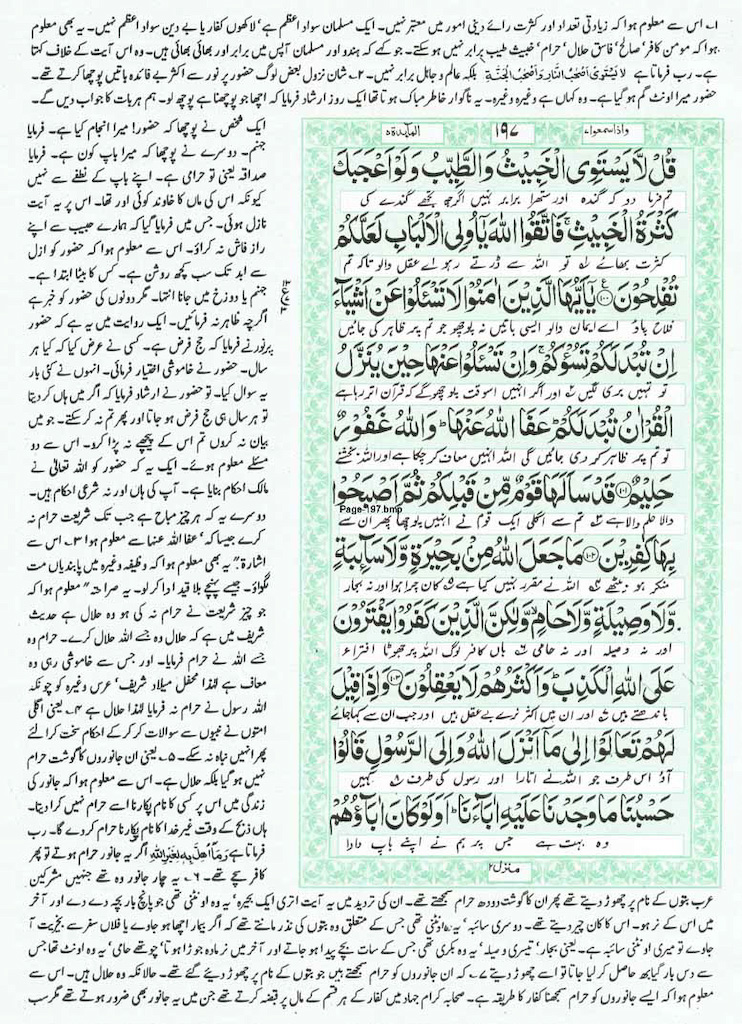 ۱۔ اس سے معلوم ہوا کہ زیادتی تعداد اور کثرت رائے دینی امور میں معتبر نہیں۔ ایک مسلمان سواد اعظم ہے' لاکھوں کفار یا بے دین سواد اعظم نہیں۔ یہ بھی معلوم
ہوا کہ مومن کافر' صالح' فاسق حلال' حرام' خبیث طیب برابر نہیں ہو سکتے۔ جو کہے کہ ہندو اور مسلمان آپس میں برابر اور بھائی بھائی ہیں۔ وہ اس آیت کے خلاف کہتا
ہے۔ رب فرماتا ہے لَا يَسْتَوِىْ اَصْحٰبُ النَّارِ وَاَصْحٰبُ الْجَنَّةِ بلکہ عالم و جاہل برابر نہیں۔ ۲۔ شان نزول بعض لوگ حضور پر نور سے اکثر بے فائدہ باتیں پوچھا کرتے تھے۔
حضور میرا اونٹ گم ہو گیا ہے۔ وہ کہاں ہے وغیرہ وغیرہ۔ یہ ناگوار خاطر مبارک ہوتا تھا ایک روز ارشاد فرمایا کہ اچھا جو پوچھنا ہے پوچھ لو۔ ہم ہر بات کا جواب دیں گے۔
واذا سمعوا ۷
۱۹۷
المآئدة ۵
قُلْ لَّا يَسْتَوِى الْخَبِيْثُ وَالطَّيِّبُ وَلَوْ اَعْجَبَكَ
تم فرما دو کہ گندہ اور ستھرا برابر نہیں اگرچہ تجھے گندے کی
كَثْرَةُ الْخَبِيْثِ ۚ فَاتَّقُوا اللّٰهَ يٰۤاُولِى الْاَلْبَابِ لَعَلَّكُمْ
کثرت بھائے تو اللہ سے ڈرتے رہو اے عقل والو تاکہ تم
تُفْلِحُوْنَ ۱۰۰ يٰۤاَيُّهَا الَّذِيْنَ اٰمَنُوْا لَا تَسْـَٔلُوْا عَنْ اَشْيَآءَ
فلاح پاؤ اے ایمان والو ایسی باتیں نہ پوچھو جو تم پر ظاہر کی جائیں
اِنْ تُبْدَ لَكُمْ تَسُؤْكُمْ ۚ وَاِنْ تَسْـَٔلُوْا عَنْهَا حِيْنَ يُنَزَّلُ
تو تمہیں بری لگیں اور اگر انہیں اسوقت پوچھو گے کہ قرآن اتر رہا ہے
الْقُرْاٰنُ تُبْدَ لَكُمْ ؕ عَفَا اللّٰهُ عَنْهَا ؕ وَاللّٰهُ غَفُوْرٌ
تو تم پر ظاہر کر دی جائیں گی اللہ انہیں معاف کر چکا ہے اور اللہ بخشنے
حَلِيْمٌ ۱۰۱ قَدْ سَاَلَهَا قَوْمٌ مِّنْ قَبْلِكُمْ ثُمَّ اَصْبَحُوْا
Page-197.bmp
والا حلم والا ہے تم سے اگلی ایک قوم نے انہیں پوچھا پھر ان سے
بِهَا كٰفِرِيْنَ ۱۰۲ مَا جَعَلَ اللّٰهُ مِنْۢ بَحِيْرَةٍ وَّلَا سَآئِبَةٍ
منکر ہو بیٹھے اللہ نے مقرر نہیں کیا ہے کان چرا ہوا اور نہ بجار
وَّلَا وَصِيْلَةٍ وَّلَا حَامٍ ۙ وَّلٰكِنَّ الَّذِيْنَ كَفَرُوْا يَفْتَرُوْنَ
اور نہ وصیلہ اور نہ حامی ہاں کافر لوگ اللہ پر جھوٹا افتراء
عَلَى اللّٰهِ الْكَذِبَ ؕ وَاَكْثَرُهُمْ لَا يَعْقِلُوْنَ ۱۰۳ وَاِذَا قِيْلَ
باندھتے ہیں اور ان میں اکثر نرے بے عقل ہیں اور جب ان سے کہا جائے
لَهُمْ تَعَالَوْا اِلٰى مَآ اَنْزَلَ اللّٰهُ وَاِلَى الرَّسُوْلِ قَالُوْا
آؤ اس طرف جو اللہ نے اتارا اور رسول کی طرف کہیں
حَسْبُنَا مَا وَجَدْنَا عَلَيْهِ اٰبَآءَنَا ؕ اَوَلَوْ كَانَ اٰبَآؤُهُمْ
وہ بہت ہے جس پر ہم نے اپنے باپ دادا
منزل ۲
ایک شخص نے پوچھا کہ حضور! میرا انجام کیا ہے۔ فرمایا
جہنم۔ دوسرے نے پوچھا کہ میرا باپ کون ہے۔ فرمایا
صداقہ یعنی تو حرامی ہے۔ اپنے باپ کے نطفے سے نہیں
کیونکہ اس کی ماں کا خاوند کوئی اور تھا۔ اس پر یہ آیت
نازل ہوئی۔ جس میں فرمایا گیا کہ ہمارے حبیب سے اپنے
راز فاش نہ کراؤ۔ اس سے معلوم ہوا کہ حضور کو ازل
سے ابد تک سب کچھ روشن ہے۔ کس کا بیٹا ابتدا ہے۔
جہنم یا دوزخ میں جانا انتہا۔ مگر دونوں کی حضور کو خبر ہے
اگرچہ ظاہر نہ فرمائیں۔ ایک روایت میں یہ ہے کہ حضور
پرنور نے فرمایا کہ حج فرض ہے۔ کسی نے عرض کیا کہ کیا ہر
سال۔ حضور نے خاموشی اختیار فرمائی۔ انہوں نے کئی بار
یہ سوال کیا۔ تو حضور نے ارشاد فرمایا کہ اگر میں ہاں کر دیتا
تو ہر سال ہی حج فرض ہو جاتا اور پھر تم نہ کر سکتے۔ جو میں
بیان نہ کروں تم اس کے پیچھے نہ پڑا کرو۔ اس سے دو
مسئلے معلوم ہوئے۔ ایک یہ کہ حضور کو اللہ تعالیٰ نے
مالک احکام بنایا ہے۔ آپ کی ہاں اور نہ شرعی احکام ہیں۔
دوسرے یہ کہ ہر چیز مباح ہے جب تک شریعت حرام نہ
کرے جیسا کہ' عفا اللہ عنہا سے معلوم ہوا ۳۔ اس سے
اشارۃ" یہ بھی معلوم ہوا کہ وظیفہ وغیرہ میں پابندیاں مت
لگواؤ۔ جیسے پہنچے بلا قید ادا کر لو۔ یہ صراحتہ" معلوم ہوا کہ
جو چیز شریعت نے حرام نہ کی ہو وہ حلال ہے حدیث
شریف میں ہے کہ حلال وہ جسے اللہ حلال کرے۔ حرام وہ
جسے اللہ نے حرام فرمایا۔ اور جس سے خاموشی رہی وہ
معاف ہے لہٰذا محفل میلاد شریف' عرس وغیرہ کو چونکہ
اللہ رسول نے حرام نہ فرمایا لہٰذا حلال ہے ۴۔ یعنی اگلی
امتوں نے نبیوں سے سوالات کر کر کے احکام سخت کرا لئے
پھر انہیں نباہ نہ سکے۔ ۵۔ یعنی ان جانوروں کا گوشت حرام
نہیں ہو گیا بلکہ حلال ہے۔ اس سے معلوم ہوا کہ جانور کی
زندگی میں اس پر کسی کا نام پکارنا اسے حرام نہیں کرا دیتا۔
ہاں ذبح کے وقت غیر خدا کا نام پکارنا حرام کر دے گا۔ رب
فرماتا ہے وَمَآ اُهِلَّ بِهٖ لِغَيْرِ اللّٰهِ اگر یہ جانور حرام ہوتے تو پھر
کافر سچے تھے۔ ۶۔ یہ چار جانور وہ تھے جنہیں مشرکین
عرب بتوں کے نام پر چھوڑ دیتے تھے پھر ان کا گوشت و دودھ حرام سمجھتے تھے۔ ان کی تردید میں یہ آیت اتری ایک بحیرہ' یہ وہ اونٹنی تھی جو پانچ بار بچہ دے دے اور آخر
میں اس کے نر ہو۔ اس کا کان چیر دیتے تھے۔ دوسری سائبہ' یہ وہ اونٹنی تھی جس کے متعلق وہ بتوں کی نذر مانتے تھے کہ اگر بیمار اچھا ہو جاوے یا فلاں سفر سے بخیریت آ
جاوے تو میری اونٹنی سائبہ ہے۔ یعنی بجار' تیسری وصیلہ' یہ وہ بکری تھی جس کے سات بچے پیدا ہو جاتے اور آخر میں نر مادہ جوڑا ہوتا' چوتھے حامی' یہ وہ اونٹ تھا جس
سے دس بار گیابھ حاصل کر لیا جاتا تو اسے چھوڑ دیتے ۷۔ کہ ان جانوروں کو حرام سمجھتے ہیں جو بتوں کے نام پر چھوڑ دیئے گئے تھے۔ حالانکہ وہ حلال ہیں۔ اس سے
معلوم ہوا کہ ایسے جانوروں کو حرام سمجھنا کفار کا طریقہ ہے۔ صحابہ کرام جہاد میں کفار کے ہر قسم کے مال پر قبضہ کرتے تھے جن میں یہ جانور بھی ضرور ہوتے تھے مگر سب